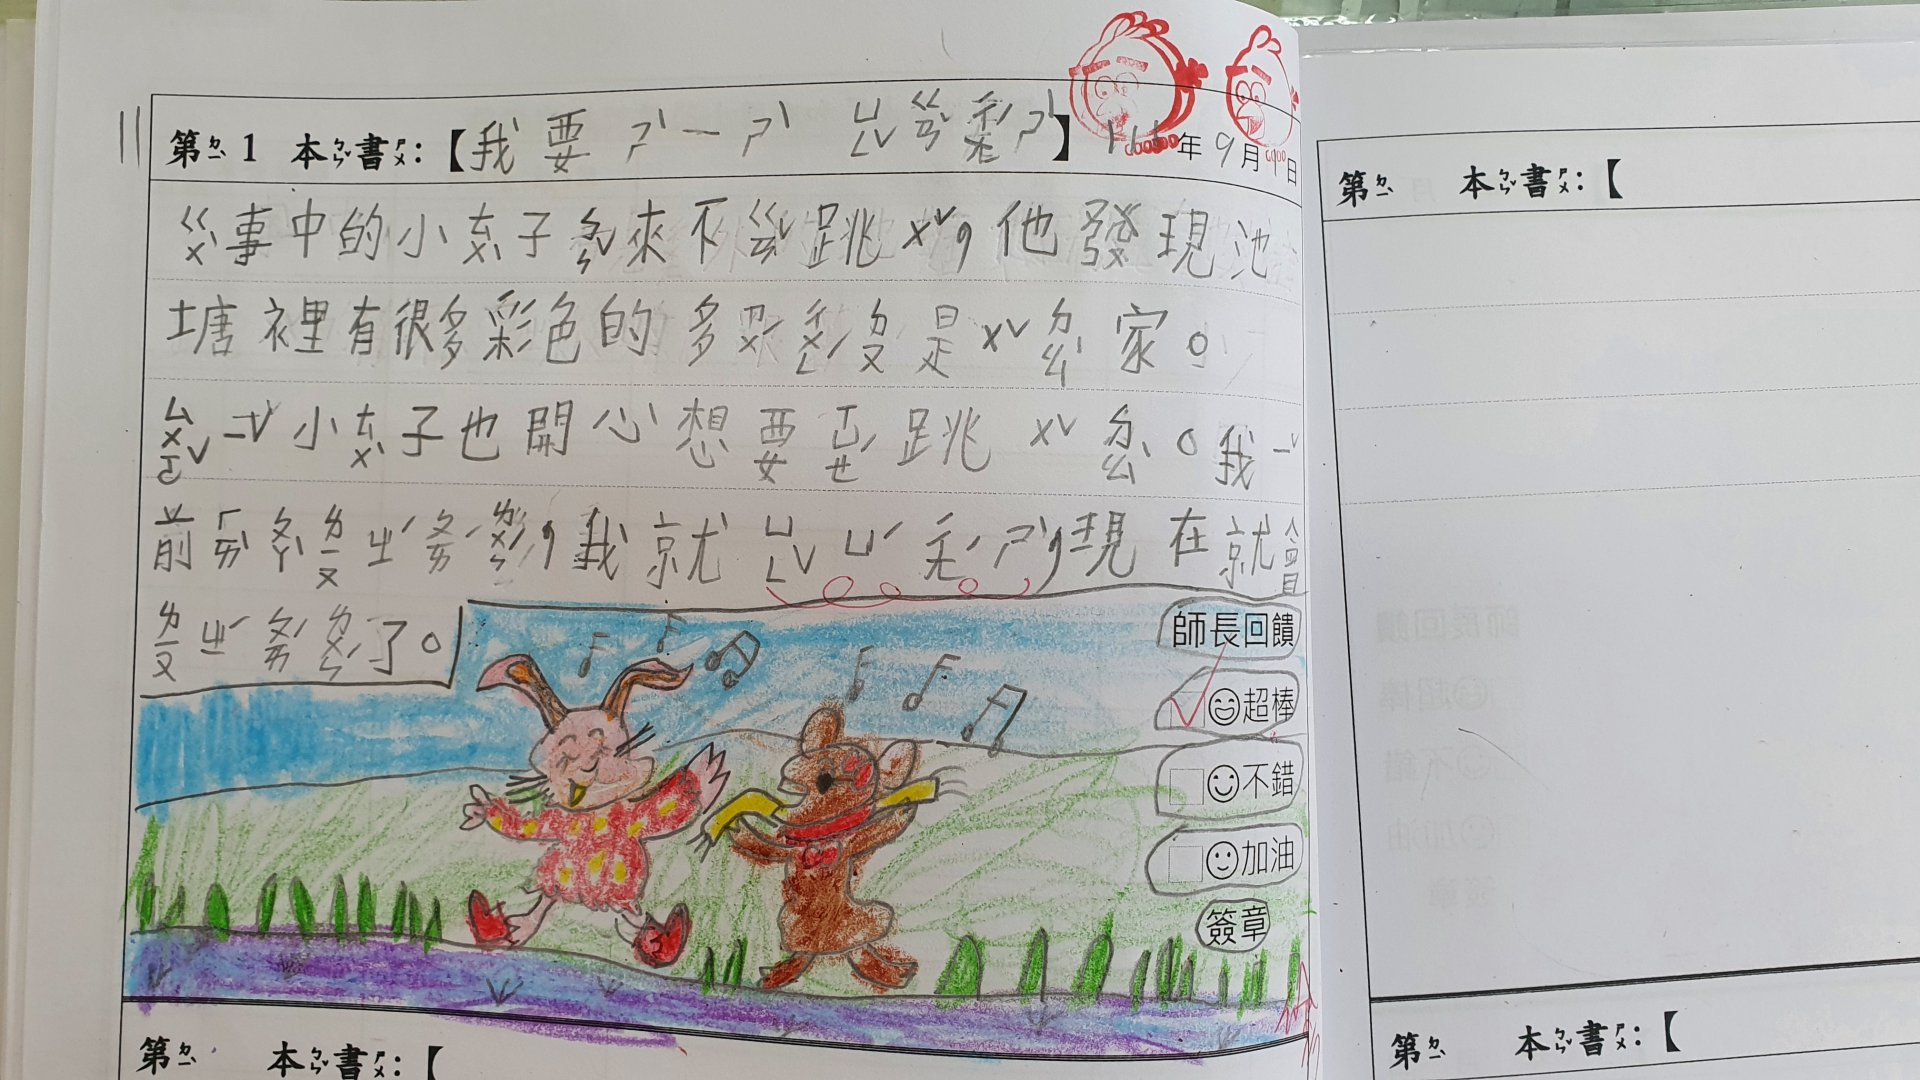 第ㄉㄧˋ 1 本ㄅㄣˇ書ㄕㄨ：【我要ㄕˋ一ㄕˋ ㄩㄥˇㄍㄢˇ ㄕˋ】年9月日
ㄍㄨˋ事中的小ㄊㄨˋ子來不ㄍㄢˇ跳ㄨˇ，他發現池
塘裡有很多彩色的多是ㄨˇㄉㄠˋ家。
ㄙㄨㄛˇㄧˇ小ㄊㄨˋ子也開心想要跳ㄨˇㄉㄠˋ。我ㄧˇ
前ㄏㄞˋㄆㄚˋㄌㄧㄡ ㄓˊㄆㄞˊㄌㄨㄣˊ，我就ㄩㄥˇㄩˊ ㄕˋ，現在就會
ㄌㄧㄡ ㄓˊㄆㄞˊㄌㄨㄣˊ了。
師長回饋
超棒
不錯
加油
簽章
第ㄉㄧˋ 本ㄅㄣˇ書ㄕㄨ：【
第ㄉㄧˋ 本ㄅㄣˇ書ㄕㄨ：【
第ㄉㄧˋ 本ㄅㄣˇ書ㄕㄨ：【